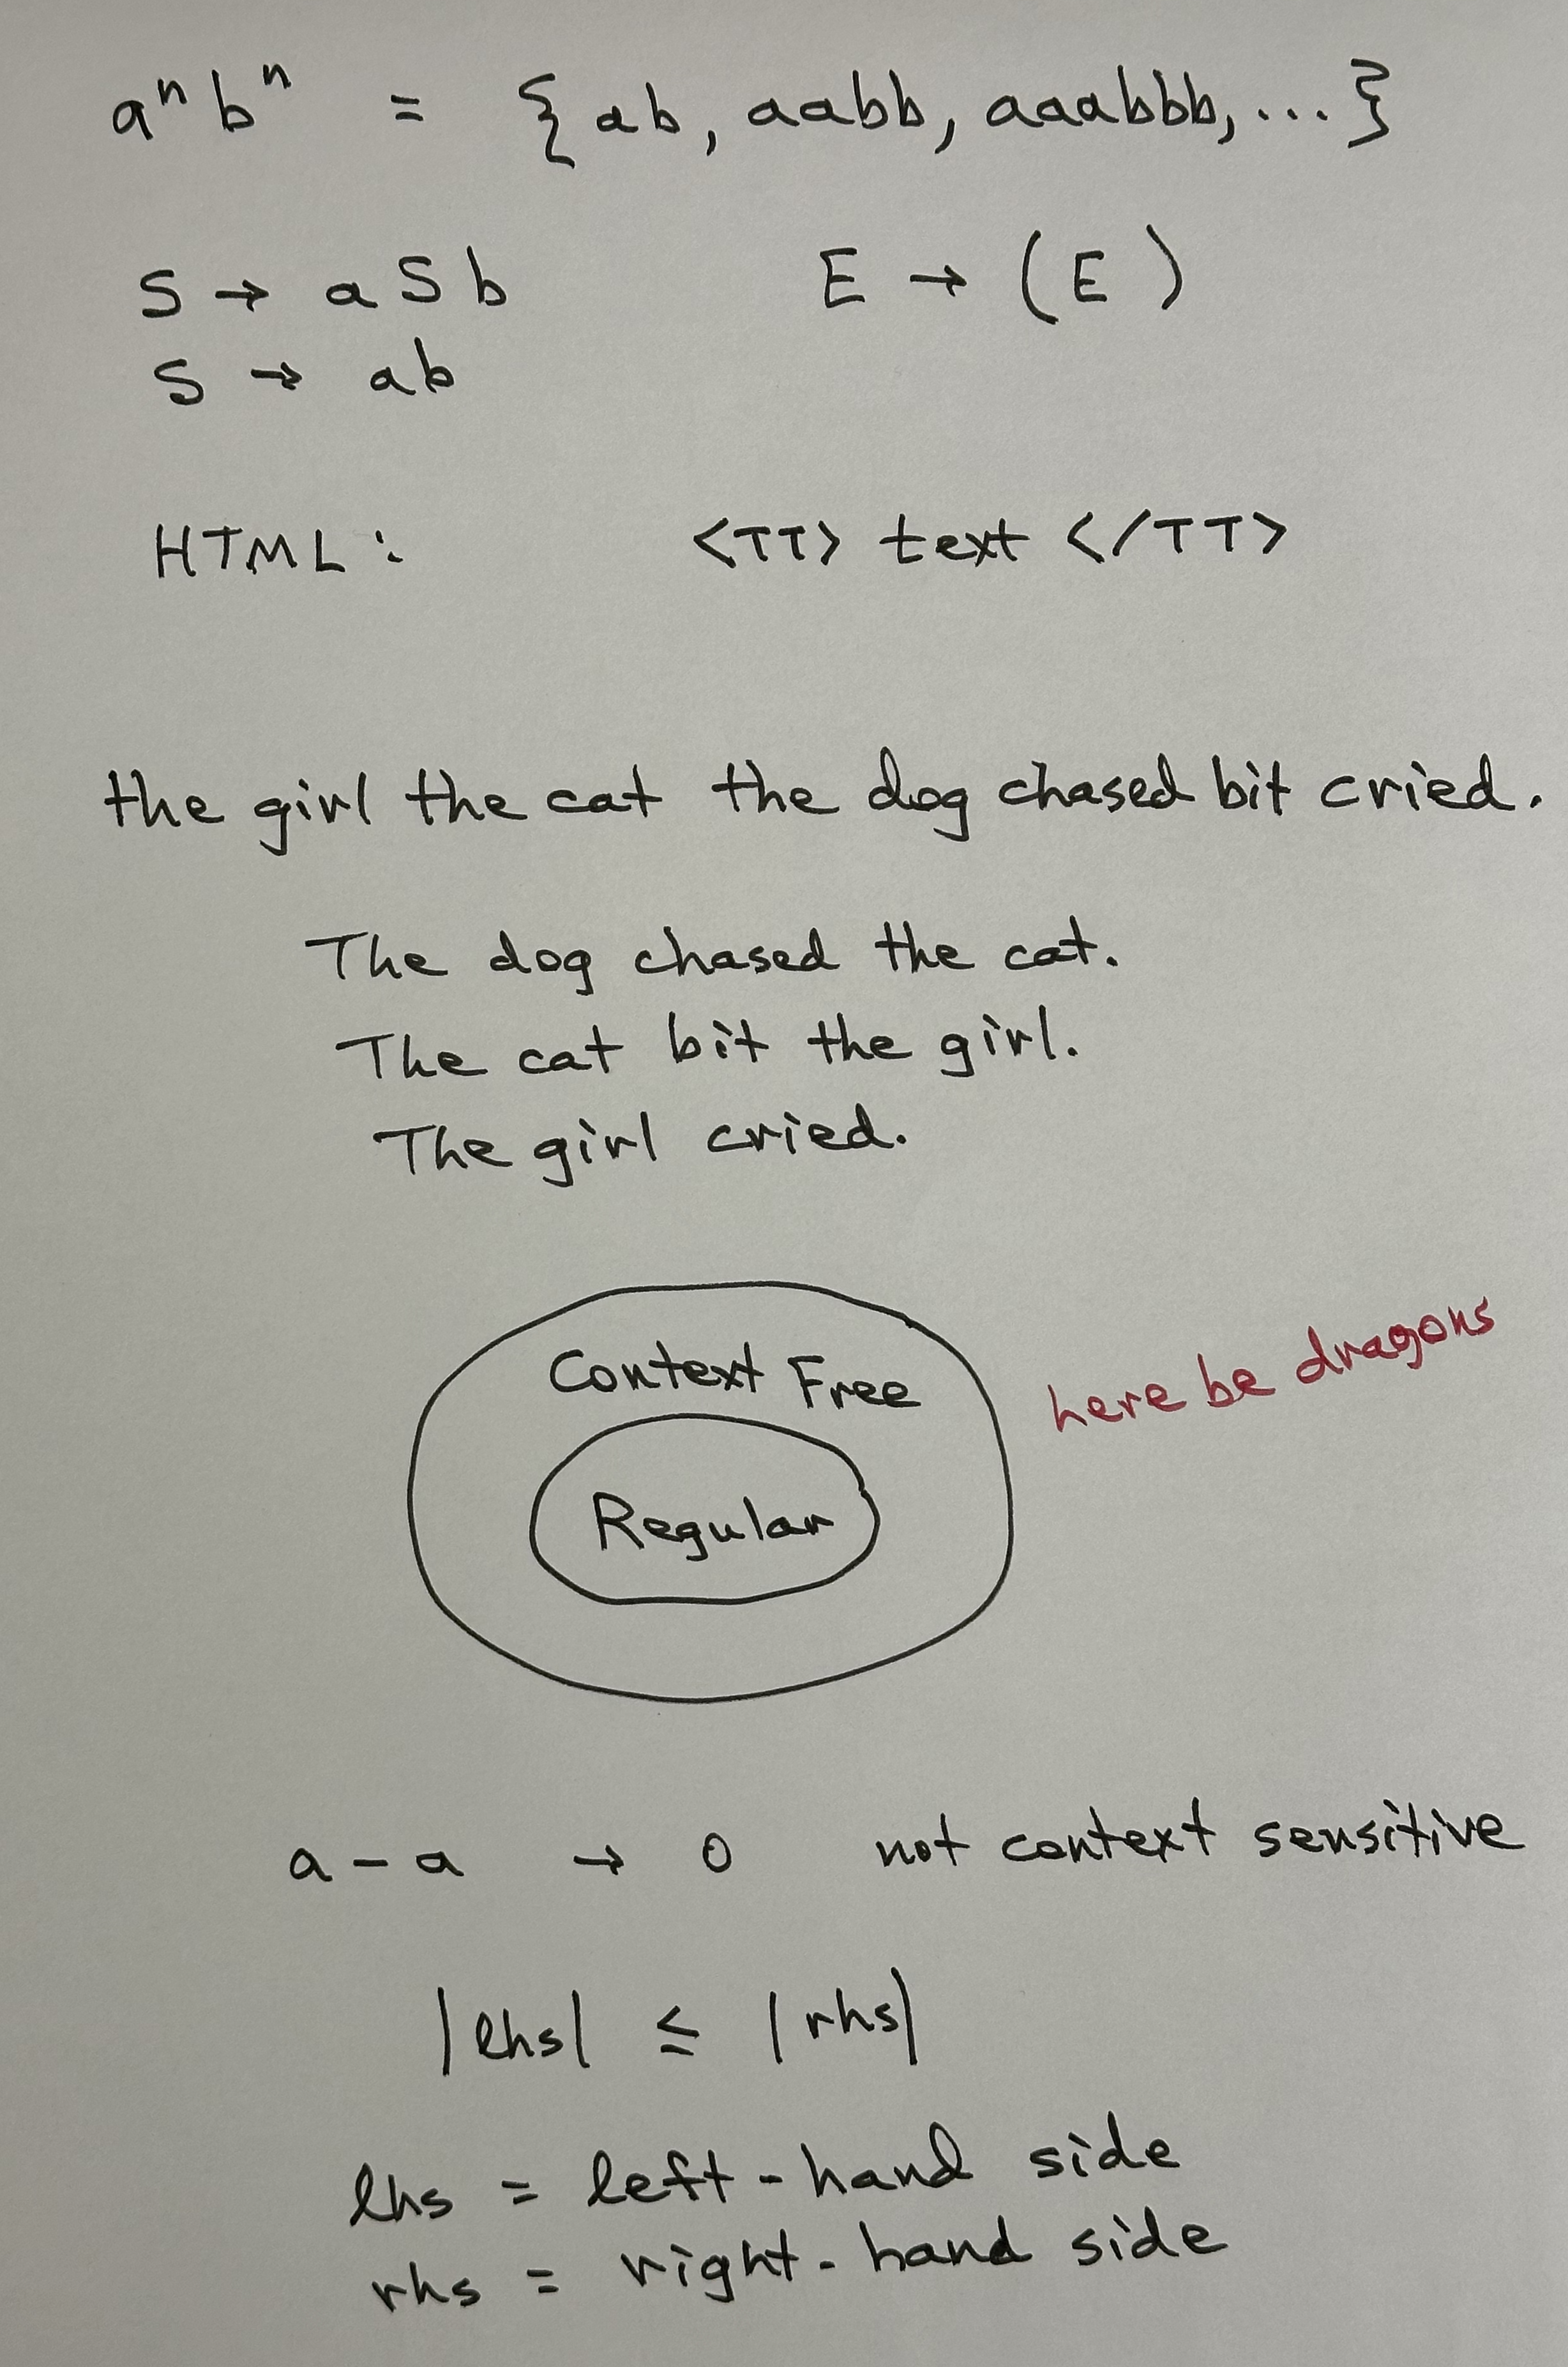 aⁿ bⁿ = { ab, aabb, aaabbb, ... }
S → a S b E → ( E )
S → ab
HTML: <TT> text </TT>
the girl the cat the dog chased bit cried.
The dog chased the cat.
The cat bit the girl.
The girl cried.
Context Free
here be dragons
Regular
a - a → 0 not context sensitive
|lhs| ≤ |rhs|
lhs = left-hand side
rhs = right-hand side